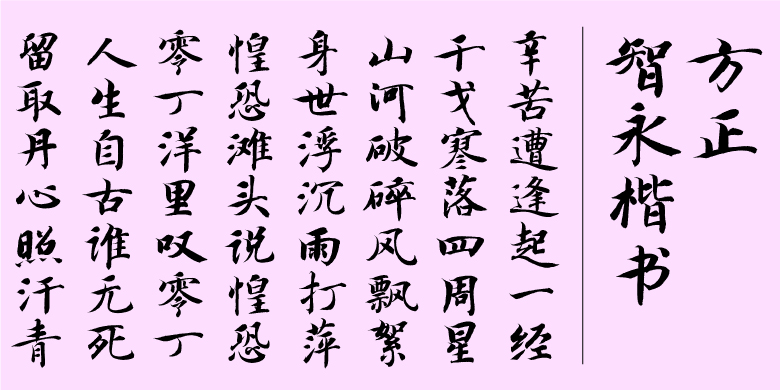 方正
智永楷书
辛苦遭逢起一经
干戈寒落四周星
山河破碎风飘絮
身世浮沉雨打萍
惶恐滩头说惶恐
零丁洋里叹零丁
人生自古谁无死
留取丹心照汗青